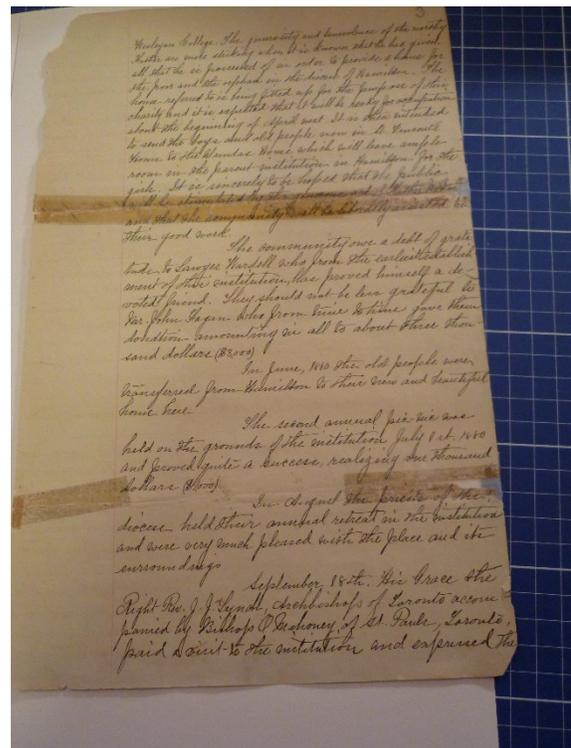 3
Wesleyan College. The generosity and benevolence of the worthy
Foster are more striking when it is known that he has given
all that he is possessed of in order to provide a home for
the poor and the orphan in the diocese of Hamilton. The
home referred to is being fitted up for the purpose of this
charity and it is expected that it will be ready for occupation
about the beginning of April next. It is then intended
to send the boys and old people now in St. Vincent's
Home to the Dundas Home which will leave ample
room in the parent institution in Hamilton for the
girls. It is sincerely to be hoped that the public
will be stimulated by the
and that the community will be liberally assisted in
their good work.
The community owe a debt of grati
tude to Lawyer Wardell who from the earliest establish
ment of this institution, has proved himself a de-
voted friend. They should not be less grateful to
Mr. John Fagan who from time to time gave them
donation amounting in all to about three thou-
sand dollars ($3,000)
In June, 1880 the old people were
transferred from Hamilton to their new and beautiful
home here.
The second annual pic-nic was
held on the grounds of the institution July 1st. 1880
and proved quite a success, realizing one thousand
dollars ($1,000).
In August the priests of the
diocese held their annual retreat in the institution
and were very much pleased with the place and its
surroundings
September, 18th. His Grace the
Right Rev. J. J. Lynch, Archbishop of Toronto accom
panied by Bishop O'Mahoney, of St. Pauls, Toronto,
paid a visit to the institution and expressed the